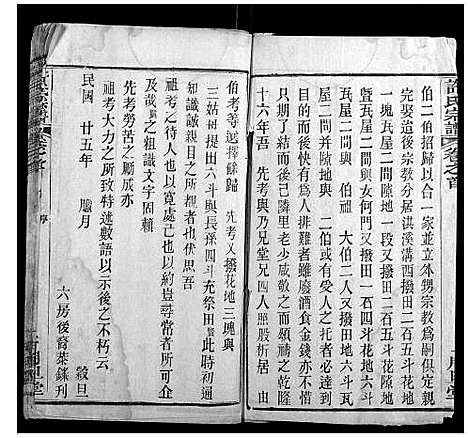 伯二伯招歸以合一家並立外甥宗教爲嗣俱定親
完娶造後宗教分居淇溪溝西撥田十六斗花地
一塊瓦屋二間並隙地一段又撥田二斗花地一段
暨瓦屋二間與女何門又撥田一石四斗花地
瓦屋二間與伯祖大伯二人又撥田地六斗瓦
屋二間並隙地與二伯或有受人之托者必達到
其目的不惜优有爲人排難者雖廢酒食金錢亦不
只期了結而後已隣里老少咸敬之而頌之乾隆
十六年吾先考與乃兄堂兄四人照股析居由
伯考等選擇餘歸先考又撥花地三塊與
三姑母提田六斗與長孫四斗充祭田
知識諒親目之所覩者也伏思吾
祖考之待人也以寬處己也以約豈尋常者所可企
及識具之粗識文字固賴
先考勞苦之厲成亦
祖考大力之所致特述數語以示後之不朽云
民國廿五年臘月穀旦
六房後裔葉鎂刊
氏宗譜
卷之首
序